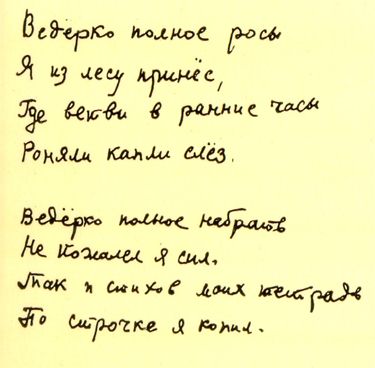 Ведёрко полное росы
Я из лесу принёс,
Где ветви в ранние часы
Роняли капли слёз.
Ведёрко полное набрать
Не пожалел я сил.
Так и стихов моих тетрадь
По строчке я копил.